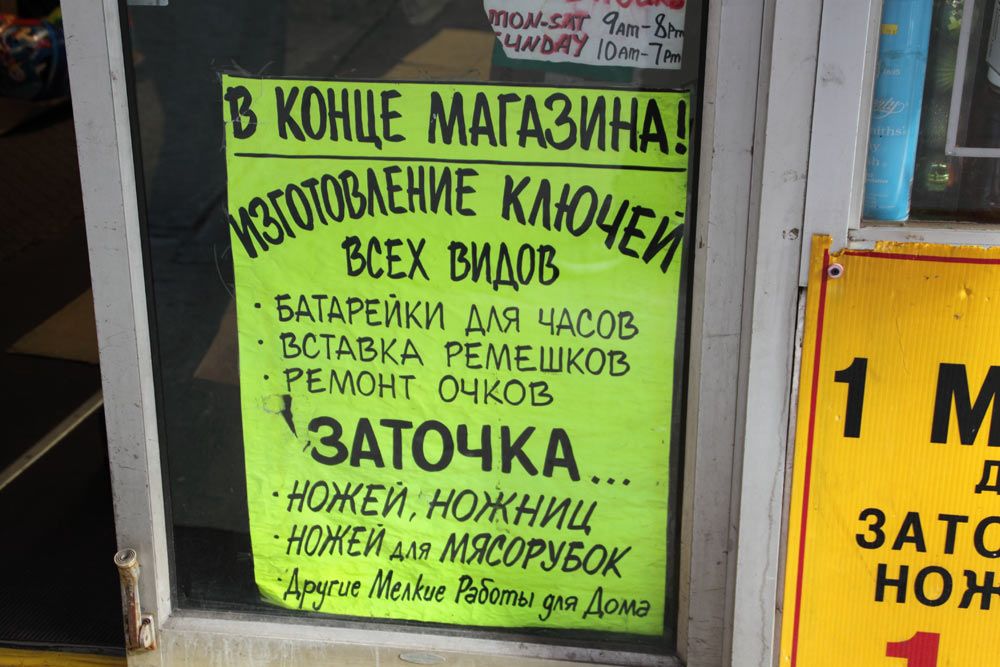 MON-SAT 9AM-8PM
SUNDAY 10AM-7PM
В КОНЦЕ МАГАЗИНА!
ИЗГОТОВЛЕНИЕ КЛЮЧЕЙ
ВСЕХ ВИДОВ
· БАТАРЕЙКИ ДЛЯ ЧАСОВ
· ВСТАВКА РЕМЕШКОВ
· РЕМОНТ ОЧКОВ
ЗАТОЧКА...
· НОЖЕЙ, НОЖНИЦ
· НОЖЕЙ для МЯСОРУБОК
· Другие Мелкие Работы для Дома
1 М
Д
ЗАТО
НОЖ
1